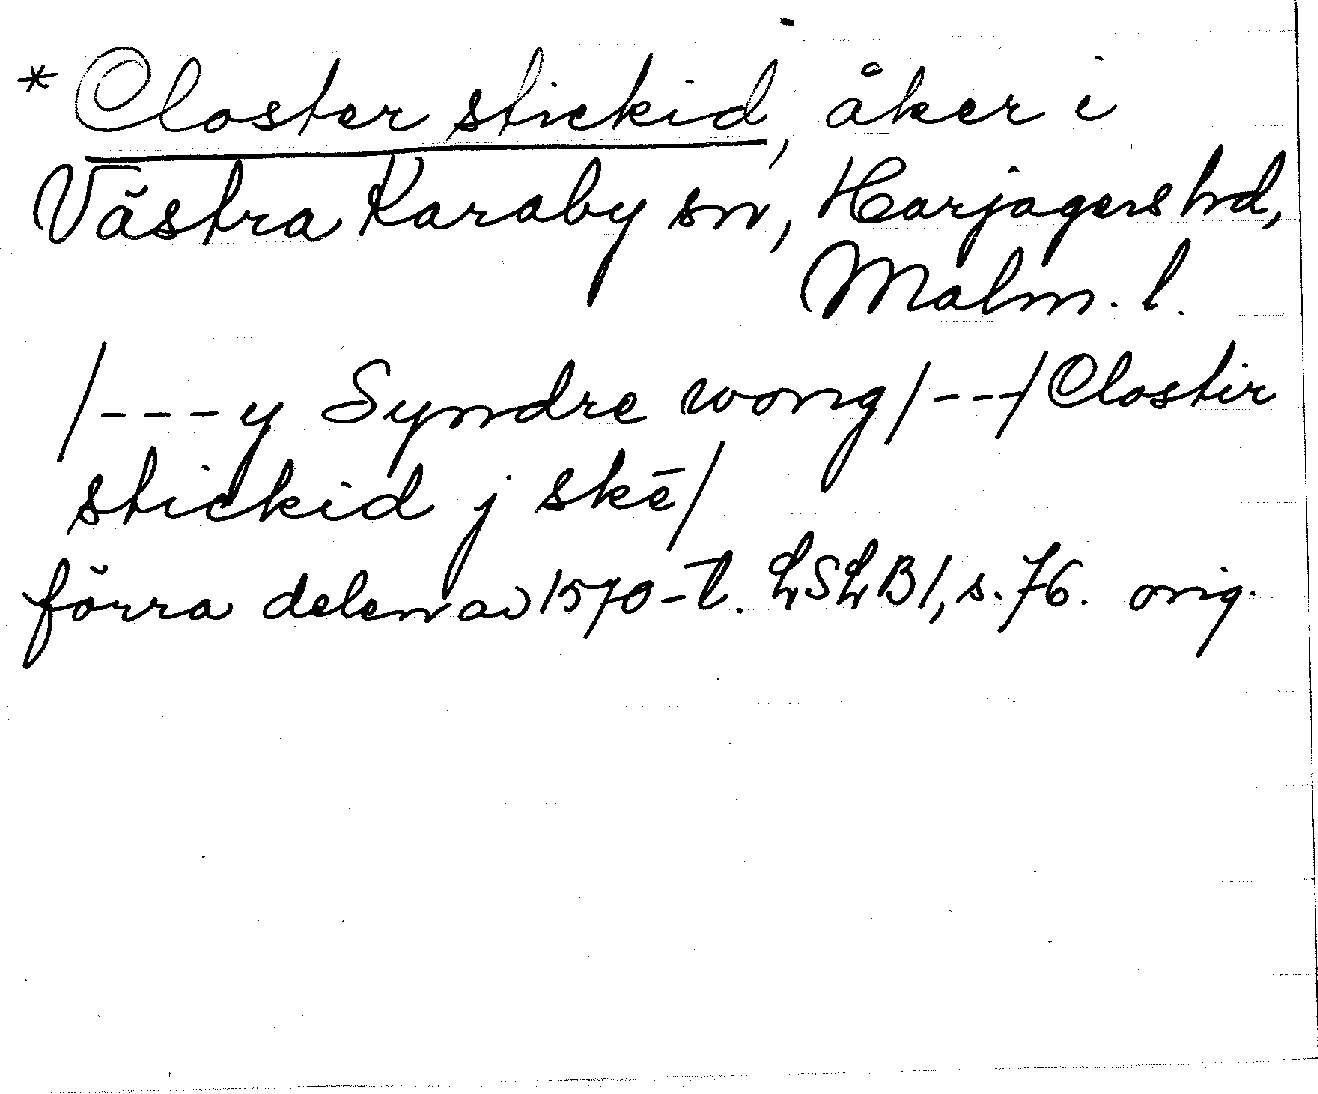 * Closter stickid, åker i
Västra Karaby sn, Harjagers hd,
Malm. l.
/---y Syndre wong/---/Clostir
stickid j skē/
förra delen av 1570-t. LSLB1, s. 76. orig.